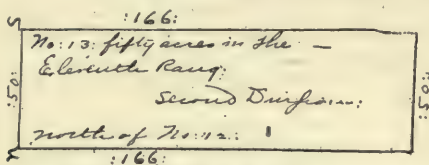 :166:
No: 13: fifty acres in the —
Eleventh Rang:
Second Division:
north of No: 12: 1
:50:
:50:
:166: